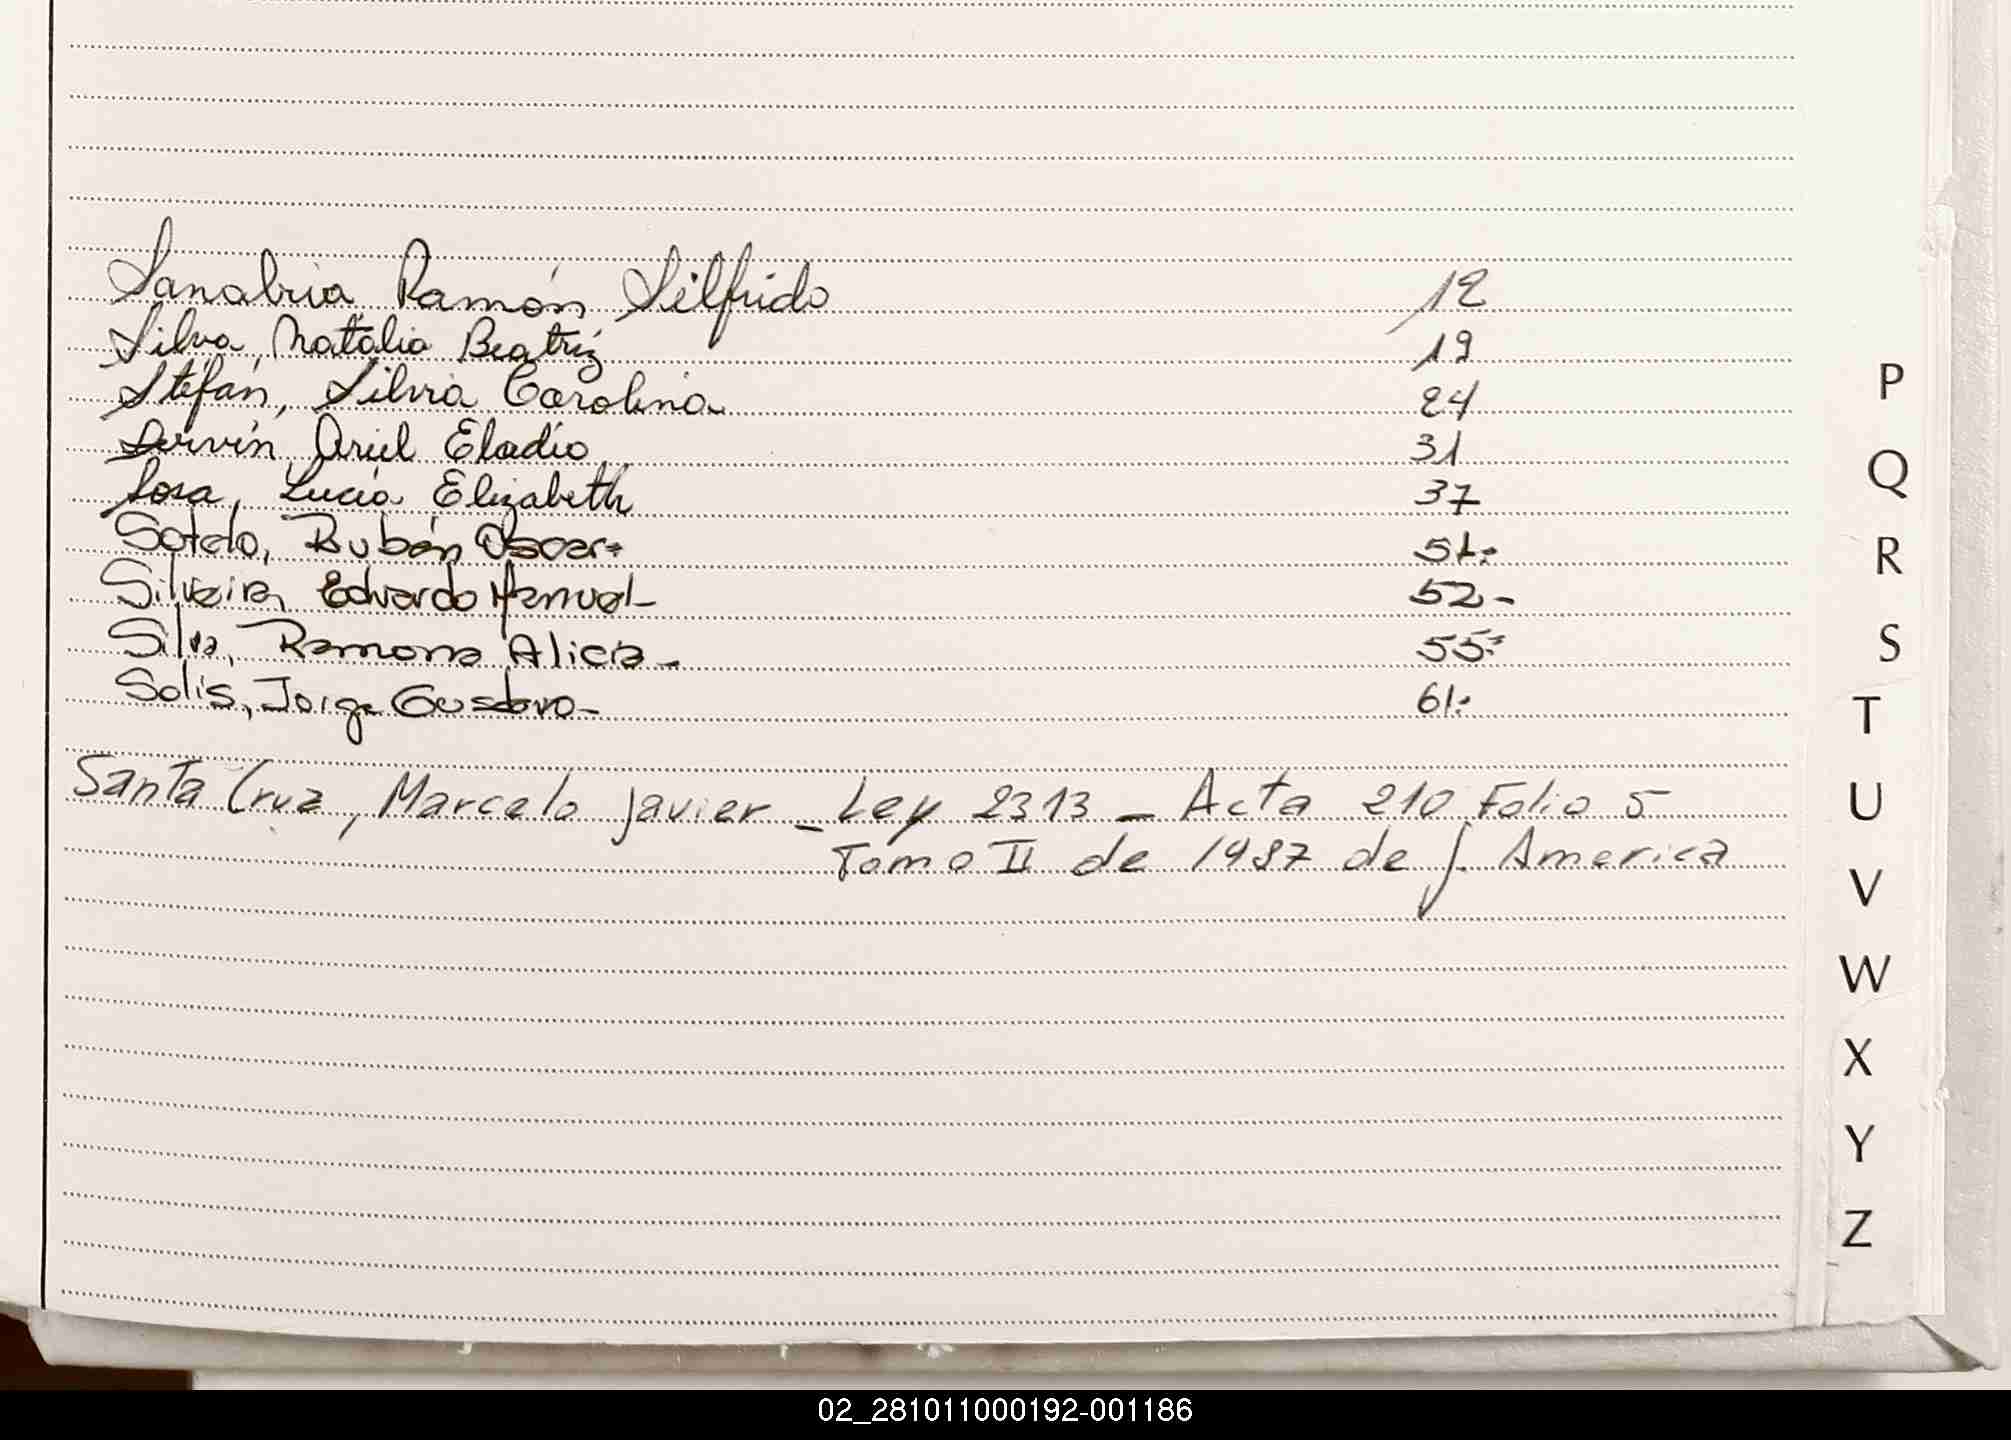 Sanabria Ramón Silfrido 12
Silva, Natalia Beatriz 19
Stéfan, Silvia Carolina 24
Servín Ariel Eladio 31
Sosa, Lucía Elizabeth 37
Sotelo, Rubén Oscar- 51.-
Silveira, Eduardo Manuel- 52-
Silva, Ramona Alicia- 55.-
Solís, Jorge Gustavo- 61.-
Santa Cruz, Marcelo Javier - Ley 2313 - Acta 210 Folio 5
Tomo II de 1987 de J. America
P
Q
R
S
T
U
V
W
X
Y
Z
02_281011000192-001186